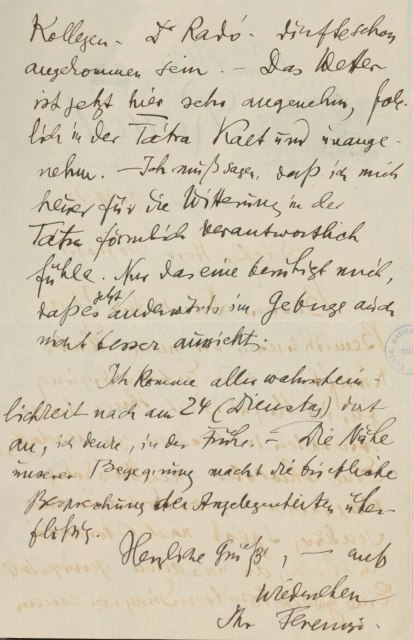 Kollegen. Dr Radó. dürfte schon
angekommen sein. — Das Wetter
ist jetzt hier sehr angenehm, folg-
lich in der Tátra kalt und unange-
nehm. — Ich muß sagen, daß ich mich
heuer für die Witterung in der
Tátra förmlich verantwortlich
fühle. Nur das eine beruhigt mich,
daß es jetzt anderwärts im Gebirge auch
nicht besser aussieht.
Ich komme aller wahrschein-
lichkeit nach am 24 (Dienstag) dort
an, ich denke, in der Frühe. — Die Nähe
unserer Begegnung macht die briefliche
Besprechung der Angelegenheiten über-
flüßig.
Herzliche Grüße, — auf
Wiedersehen
Ihr Ferenczi.